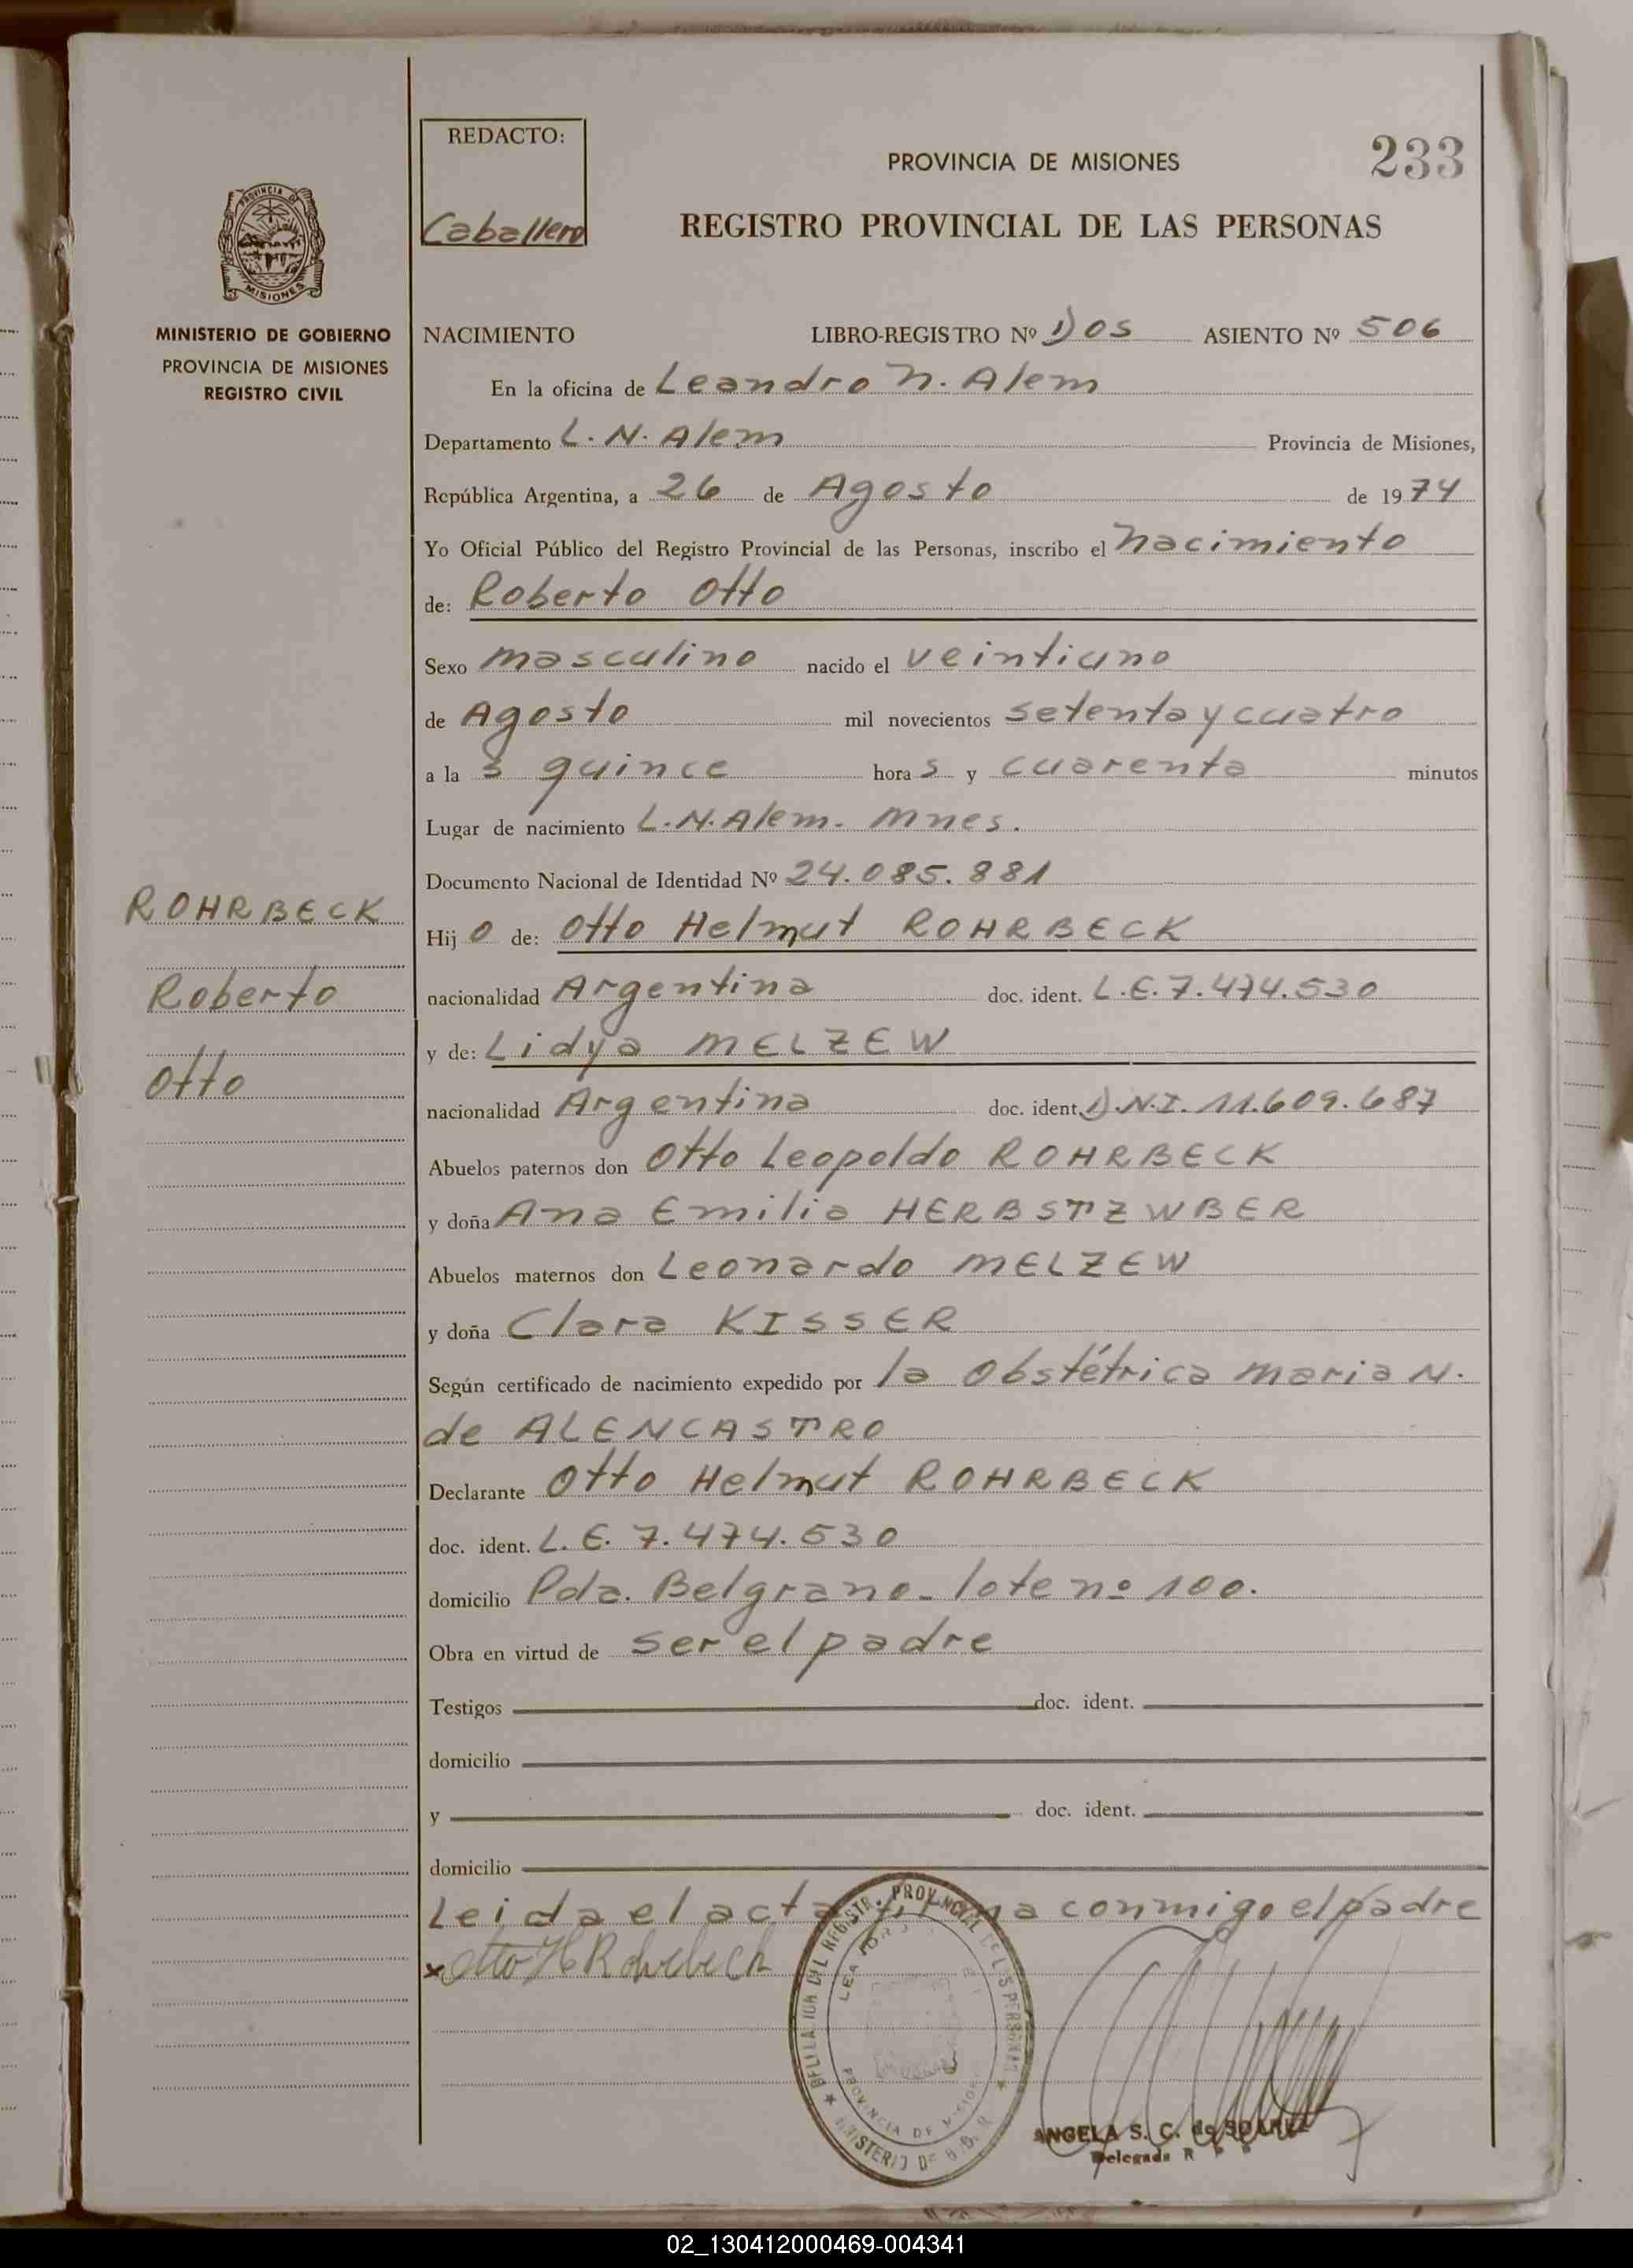 233
REDACTO:
Caballero
PROVINCIA DE MISIONES
REGISTRO PROVINCIAL DE LAS PERSONAS
PROVINCIA DE
MISIONES
MINISTERIO DE GOBIERNO
PROVINCIA DE MISIONES
REGISTRO CIVIL
NACIMIENTO LIBRO-REGISTRO Nº DOS ASIENTO Nº 506
En la oficina de Leandro N. Alem
Departamento L. N. Alem Provincia de Misiones,
República Argentina, a 26 de Agosto de 1974
Yo Oficial Público del Registro Provincial de las Personas, inscribo el nacimiento
de: Roberto Otto
Sexo masculino nacido el veintiuno
de Agosto mil novecientos setenta y cuatro
a la s quince hora s y cuarenta minutos
Lugar de nacimiento L.N.Alem. Mnes.
Documento Nacional de Identidad Nº 24.085.881
ROHRBECK
Roberto
Otto
Hij o de: Otto Helmut ROHRBECK
nacionalidad Argentina doc. ident. L.E.7.474.530
y de: Lidya MELZEW
nacionalidad Argentina doc. ident. D.N.I. 11.609.687
Abuelos paternos don Otto Leopoldo ROHRBECK
y doña Ana Emilia HERBSTZWBER
Abuelos maternos don Leonardo MELZEW
y doña Clara KISSER
Según certificado de nacimiento expedido por la Obstétrica Maria N.
de ALENCASTRO
Declarante Otto Helmut ROHRBECK
doc. ident. L.E. 7.474.530
domicilio Pda. Belgrano- lote nº 100.
Obra en virtud de ser el padre
Testigos doc. ident.
domicilio
y doc. ident.
domicilio
Leida el acta firma conmigo el padre
x Otto H Rohrbeck
PROVINCIA DE MISIONES
ANGELA S. C. de SOAREZ
Delegada R P P
02_130412000469-004341